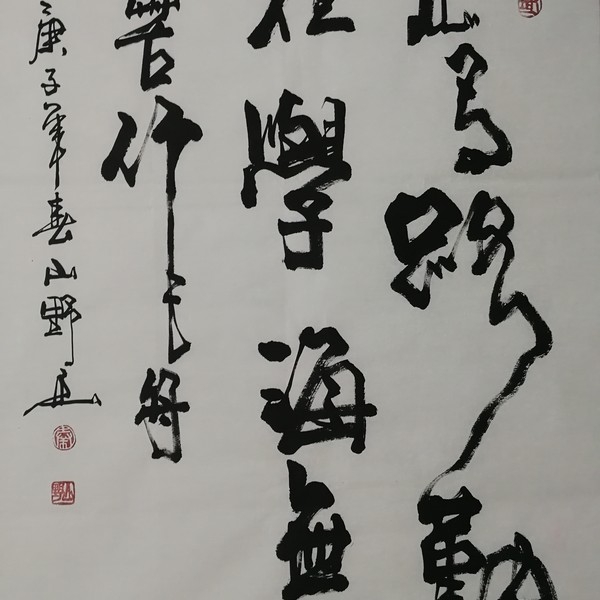 山有路勤
徑學海無
苦作舟
庚子年春山野